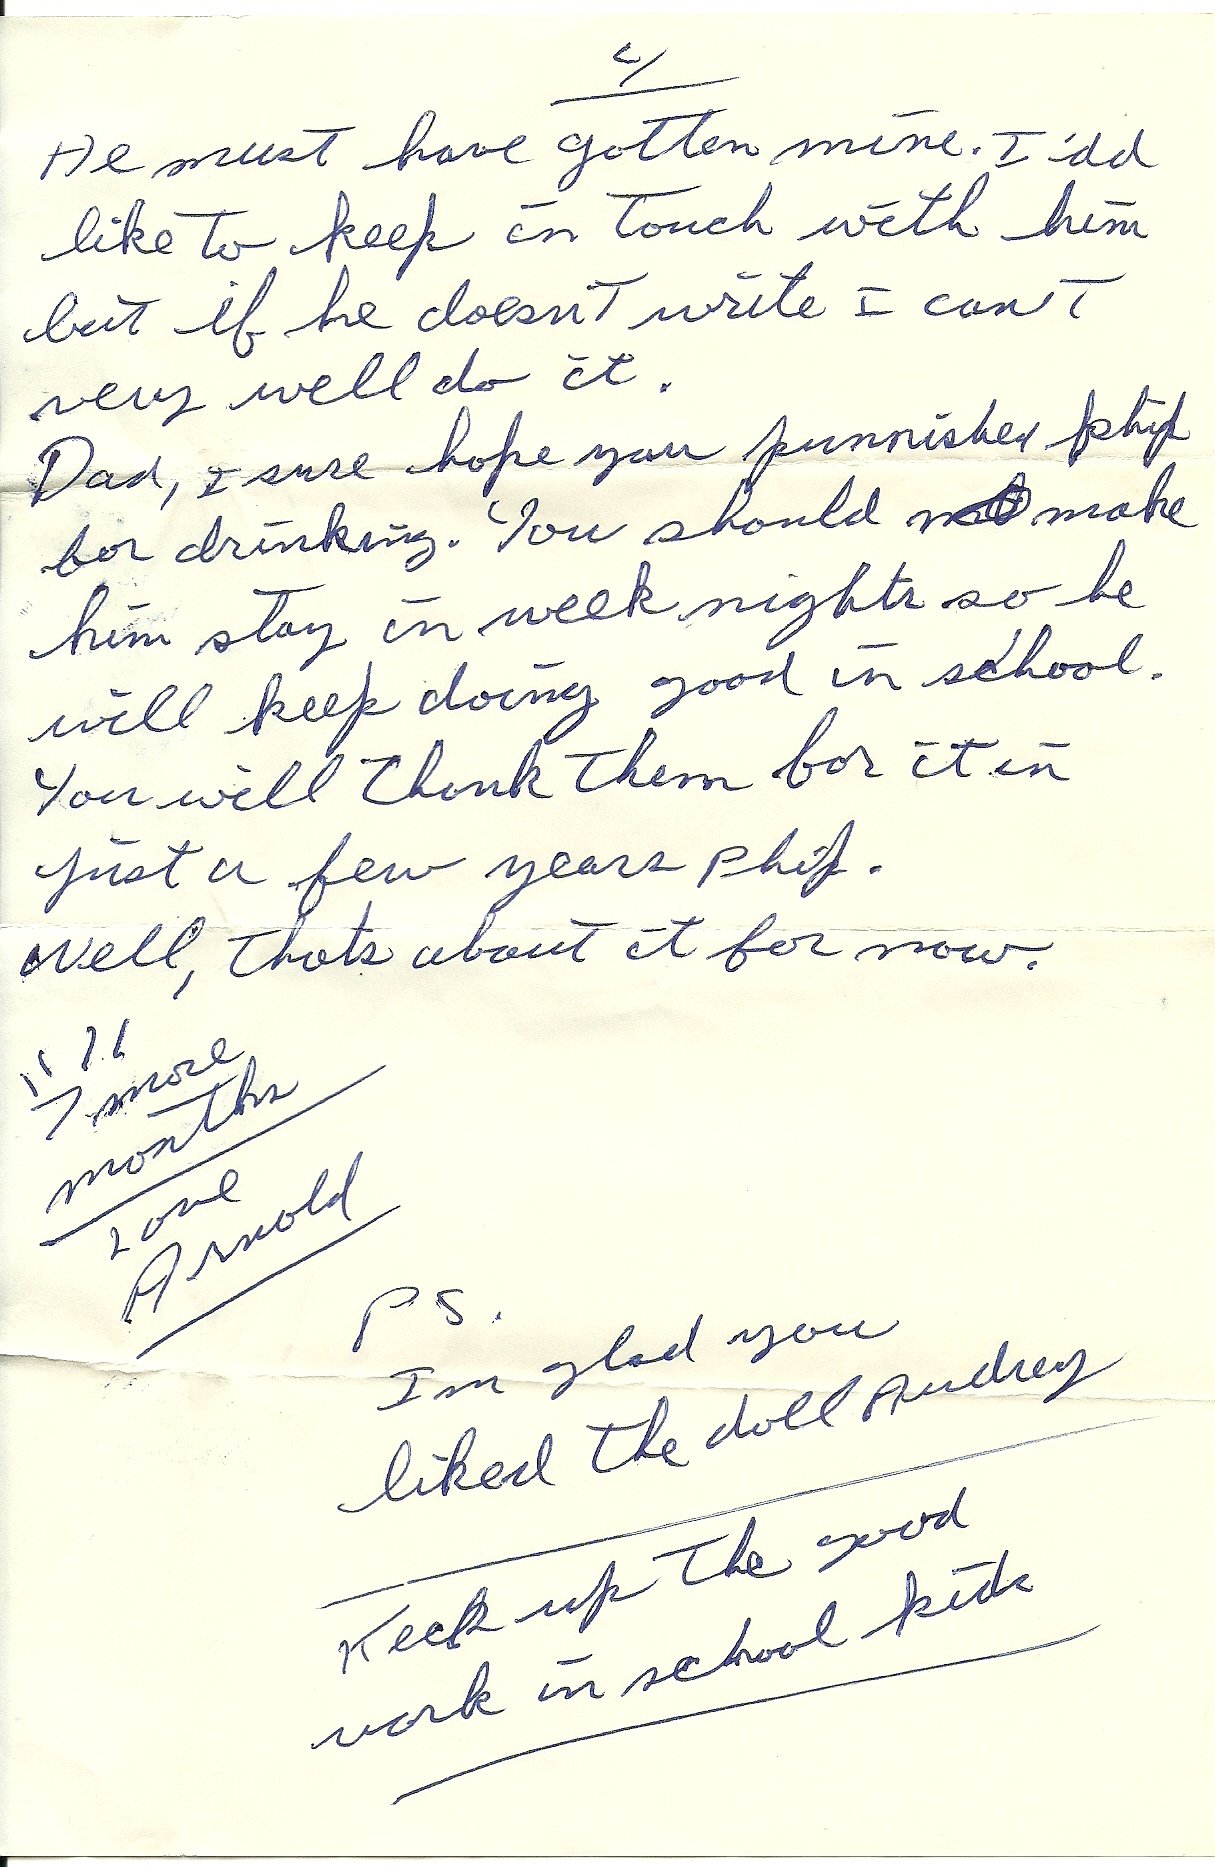 4/
He must have gotten mine. I'dd
like to keep in touch with him
but if he doesn't write I can't
very well do it.
Dad, I sure hope you punnished Phip
for drinking. You should make
him stay in week nights so he
will keep doing good in school.
You will thank them for it in
just a few years Phip.
Well, thats about it for now.
7 more
months
Love
Arnold
P S.
Im glad you
liked the doll Audrey
Keep up the good
work in school kids